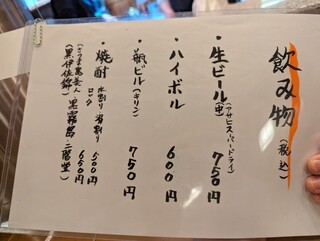 飲み物(税込)
・生ビール(中)
(アサヒスーパードライ)
750円
・ハイボル
600円
・瓶ビル(キリン)
750円
・焼酎
水割り 湯割り
ロック 500円
(さつま美人
黒伊佐錦)
黒霧島・二階堂)
650円